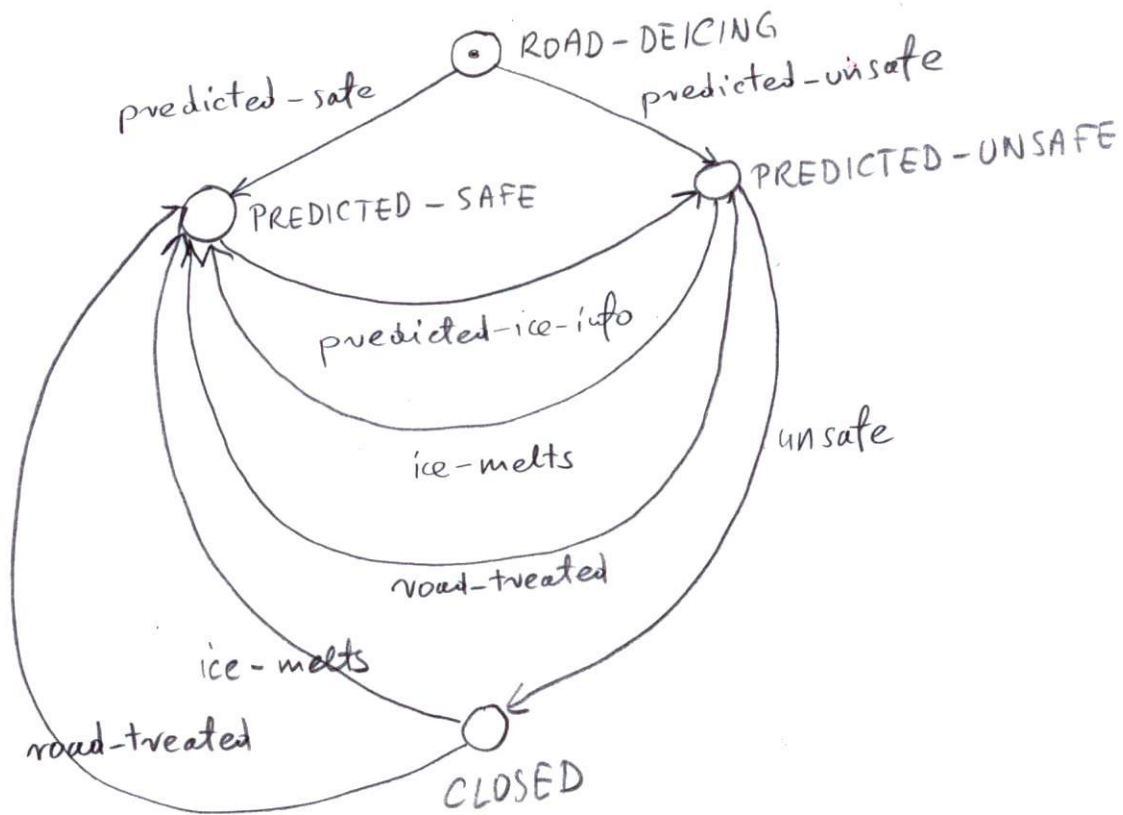 ROAD-DEICING
predicted-safe
predicted-unsafe
PREDICTED-UNSAFE
PREDICTED-SAFE
predicted-ice-info
ice-melts
unsafe
road-treated
ice-melts
road-treated
CLOSED